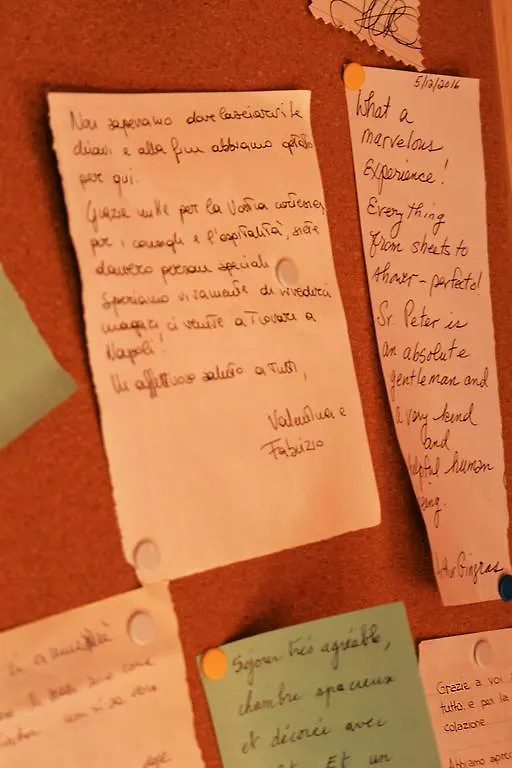 Non sapevamo dove lasciarvi le
chiavi e alla fine abbiamo optato
per qui.
Grazie mille per la Vostra cortesia,
per i consigli e l'ospitalità, siete
davvero persone speciali
Speriamo vivamente di rivederci
magari ci venite a trovare a
Napoli!
Un affettuoso saluto a tutti,
Valentina e
Fabrizio
5/12/2016
What a
marvelous
Experience!
Everything
from sheets to
shower - perfecto!
Sr. Peter is
an absolute
gentleman and
a very kind
and
helpful human
being.
Gingras
Séjour très agréable,
chambre spacieuse
et décorée avec
Et un
Grazie a voi
tutto, e per la
colazione.
Abbiamo